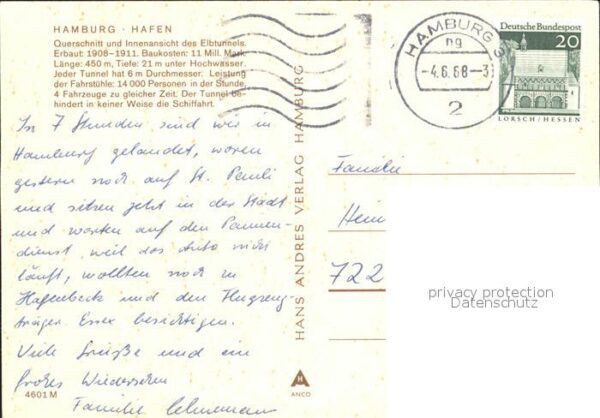 HAMBURG · HAFEN
Querschnitt und Innenansicht des Elbtunnels.
Erbaut: 1908-1911. Baukosten: 11 Mill. Mark
Länge: 450 m, Tiefe: 21 m unter Hochwasser.
Jeder Tunnel hat 6 m Durchmesser. Leistung
der Fahrstühle: 14 000 Personen in der Stunde,
4 Fahrzeuge zu gleicher Zeit. Der Tunnel be-
hindert in keiner Weise die Schiffahrt.
In 7 Stunden sind wir in
Hamburg gelandet, waren
gestern noch auf St. Pauli
und sitzen jetzt in der Stadt
und warten auf den Pannen-
dienst, weil das Auto nicht
läuft, wollten noch zu
Hagenbeck und den Flugzeug-
träger Essex besichtigen.
Viele Grüße und ein
frohes Wiedersehen
Familie
4601 M
HANS ANDRES VERLAG HAMBURG
ANCO
HAMBURG
ng
-4.6.68-3
2
Deutsche Bundespost
20
LORSCH/HESSEN
Familie
Hein
722
privacy protection
Datenschutz